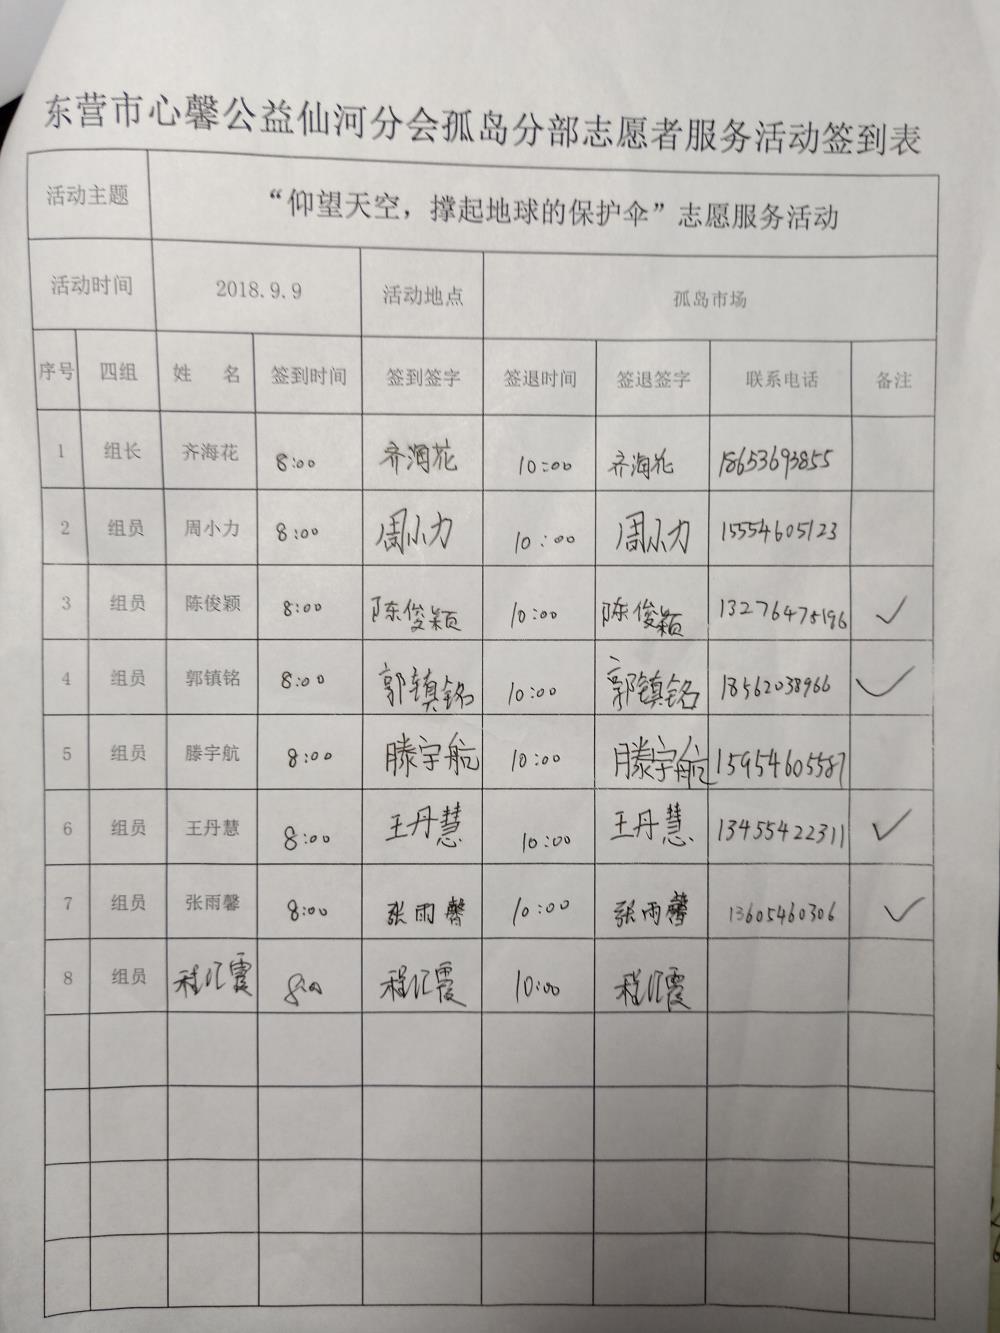 东营市心馨公益仙河分会孤岛分部志愿者服务活动签到表
活动主题 “仰望天空，撑起地球的保护伞”志愿服务活动
活动时间 2018.9.9 活动地点 孤岛市场
序号 四组 姓 名 签到时间 签到签字 签退时间 签退签字 联系电话 备注
1 组长 齐海花 8:00 齐海花 10:00 齐海花 18653693855
2 组员 周小力 8:00 周小力 10:00 周小力 15554605123
3 组员 陈俊颖 8:00 陈俊颖 10:00 陈俊颖 13276475196 ✓
4 组员 郭镇铭 8:00 郭镇铭 10:00 郭镇铭 18562038966 ✓
5 组员 滕宇航 8:00 滕宇航 10:00 滕宇航 15954605587
6 组员 王丹慧 8:00 王丹慧 10:00 王丹慧 13455422311 ✓
7 组员 张雨馨 8:00 张雨馨 10:00 张雨馨 13605460306 ✓
8 组员 程汇霞 8:00 程汇霞 10:00 程汇霞